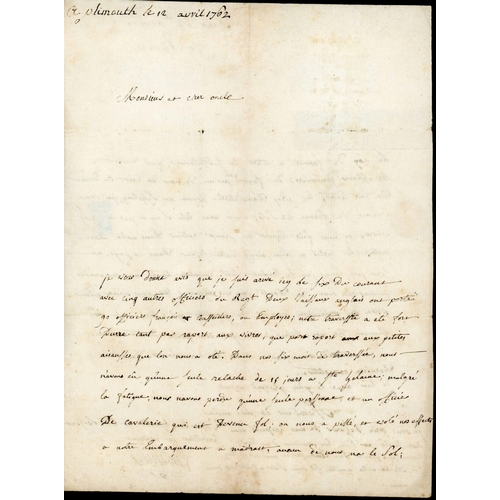 a plimouth le 12 avril 1762
Monsieur et cher oncle
je vous donne avis que je suis arrivé icy le six du courant
avec cinq autres officiers du Regt Deux vaisseaux anglais ont porté
90 officiers français et Caffidiers, ou Employes; notre traversée a été fort
Durre tant par raport aux vivres, que par raport aux petites
aisances que l'on nous a oté. Dans nos six mois de traversée, nous
n'avons eu qu'une seule relache de 15 jours a Ste helaine; malgré
la fatigue, nous n'avons perdu qu'une seule personne et un officier
De cavalerie qui est Devenu fol; on nous a pillé, et volé nos effets
a notre Embarquement a madrast; aucun de nous na le Sol;